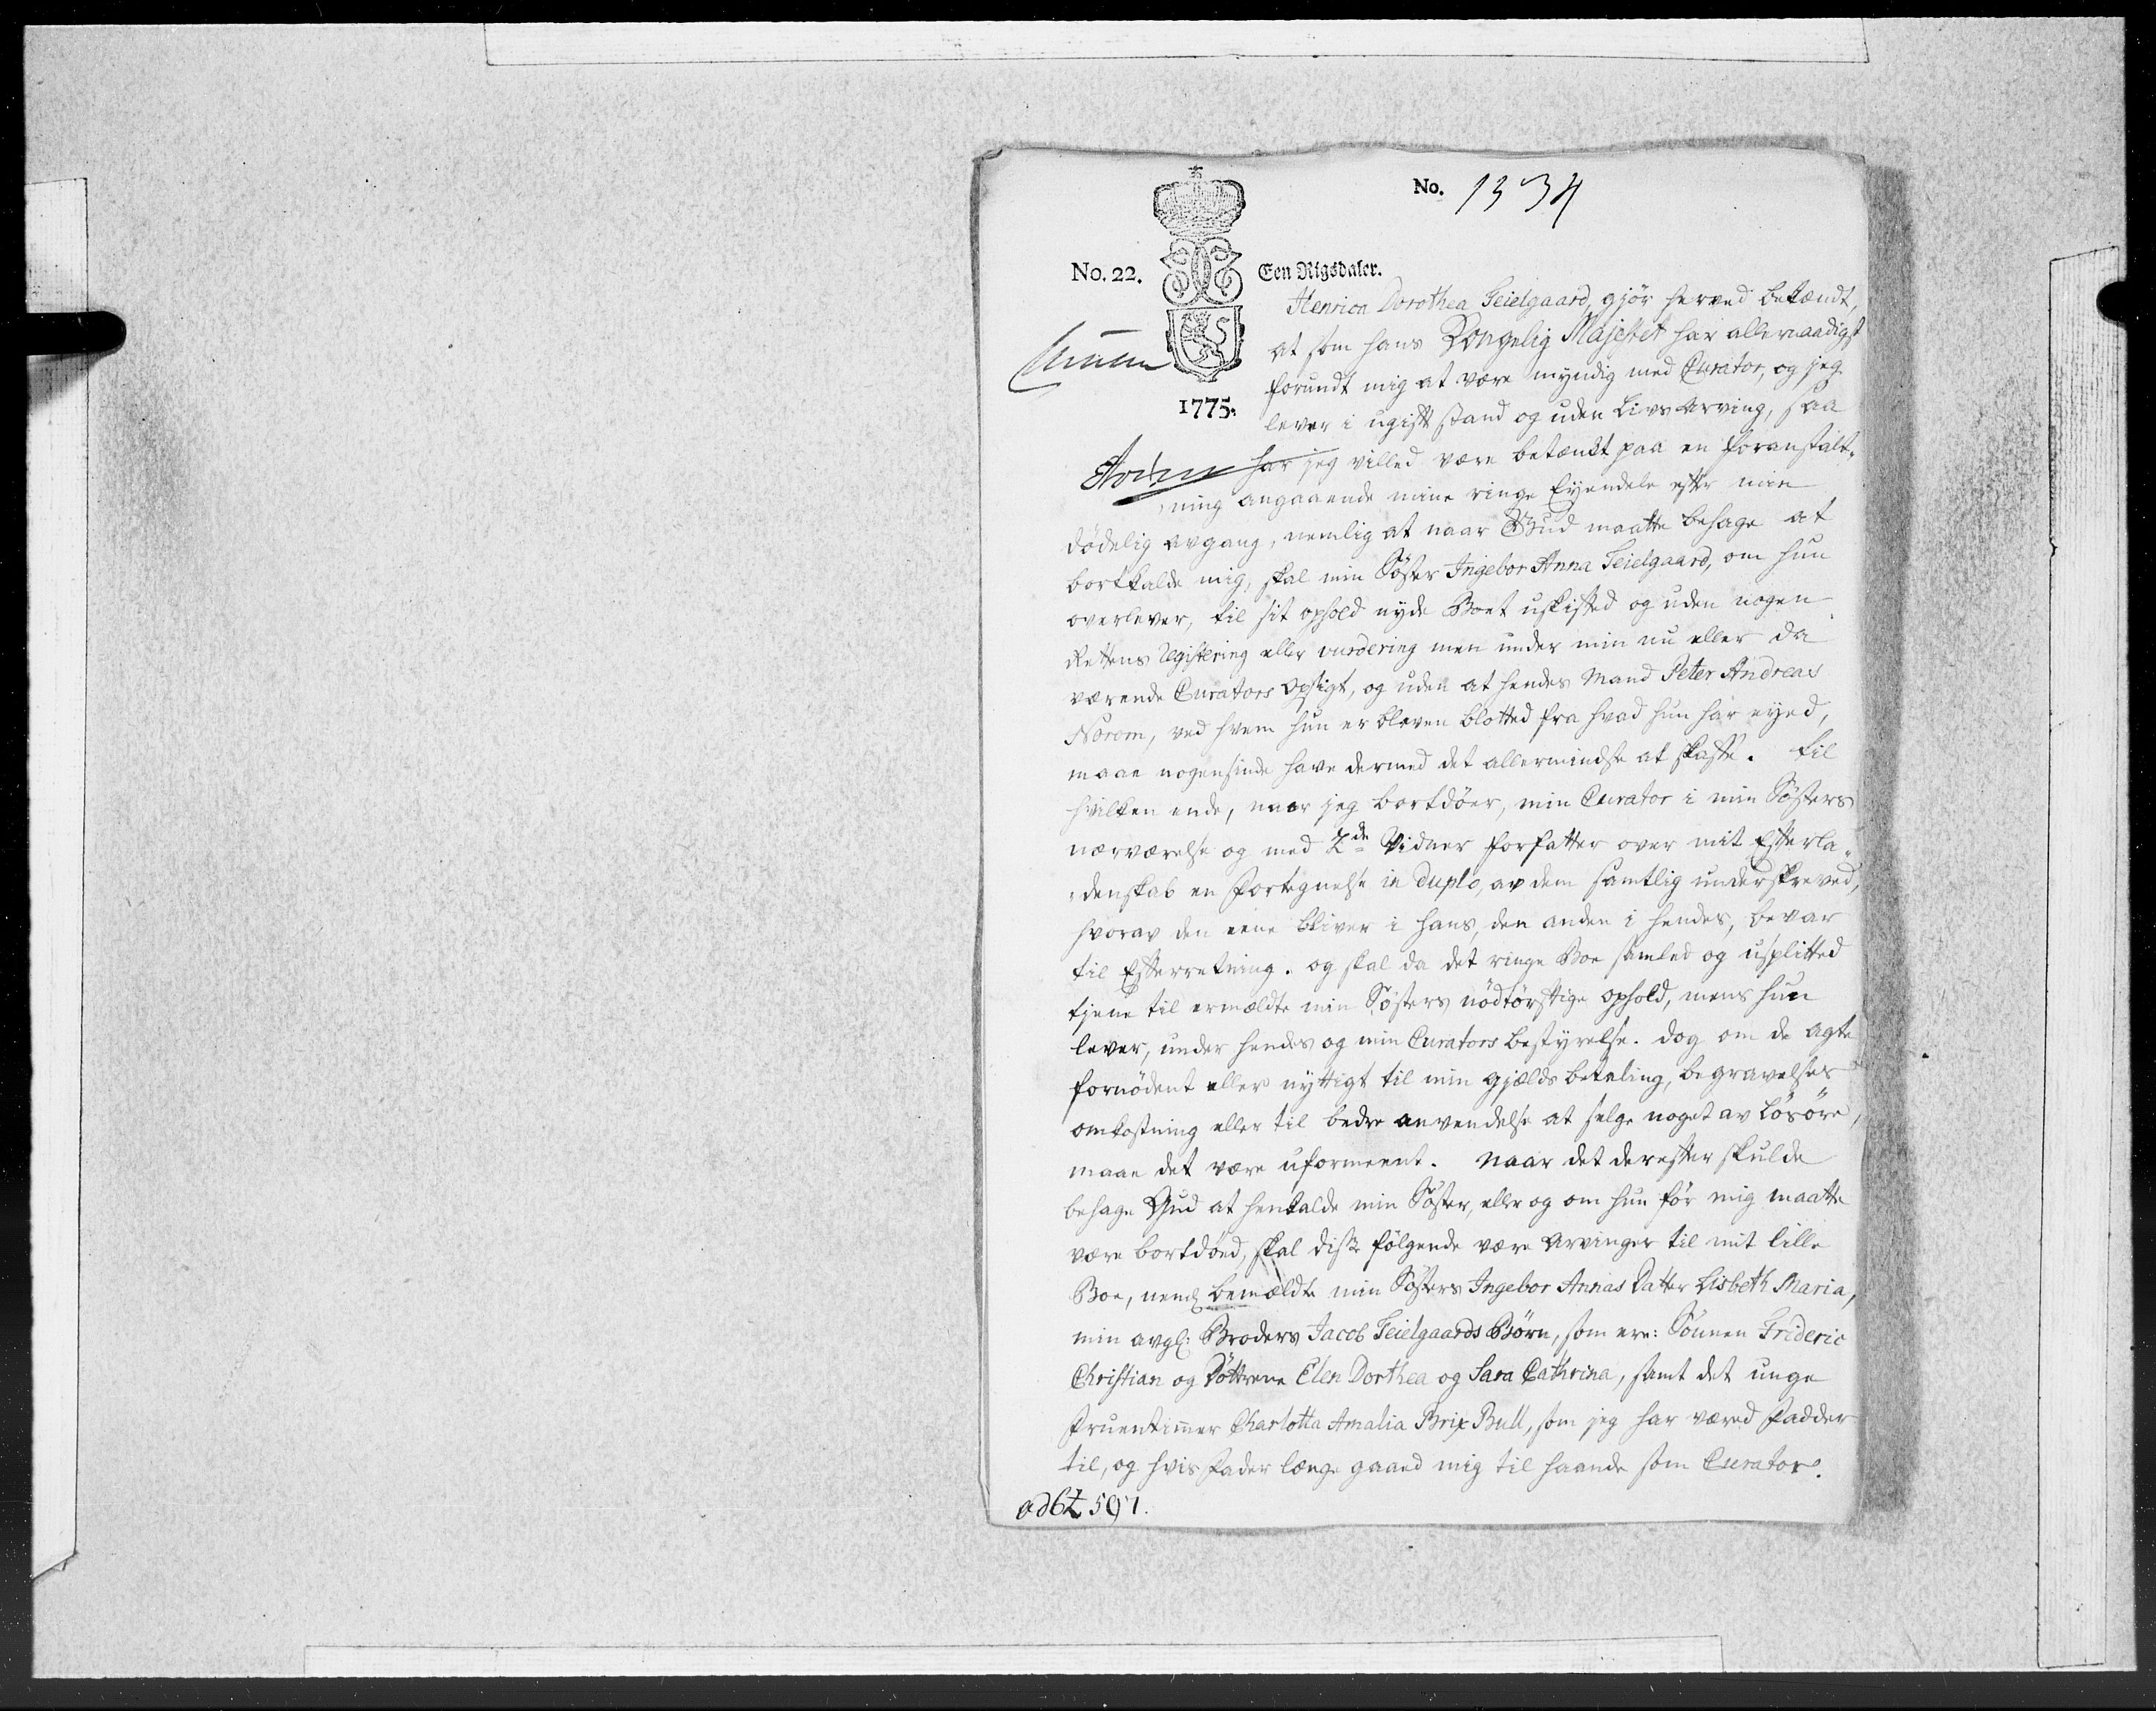 No. 1334
No. 22. Een Rigsdaler.
1775.
Henrica Dorothea Teielgaard, gjör herved bekændt,
at som hans Kongelig Majestet har allernaadigst
forundt mig at være myndig med Curator, og jeg
lever i ugift stand og uden Livs Arving, saa
har jeg villed være betænkt paa en foranstalt-
ning angaaende mine ringe Eyendele efter min
dödelig avgang, nemlig at naar Gud maatte behage at
bortkalde mig, skal min Söster Ingebor Anna Teielgaard, om hun
overlever, til sit ophold nyde Boet uskifted og uden nogen
Rettens Registering eller vurdering men under min nu eller da
værende Curators Opsigt, og uden at hendes Mand Peter Andreas
Norom, ved hvem hun er bleven blotted fra hvad hun har eyed,
maae nogensinde have dermed det allermindste at skaffe. til
hvilken ende, naar jeg bortdöer, min Curator i min Sösters
nærværelse og med 2de Vidner forfatter over mit Efterla-
denskab en Fortegnelse in duplo, av dem samtlig underskreved,
hvorav den eene bliver i hans, den anden i hendes, bevar
til Efterretning. og skal da det ringe Boe samled og usplitted
tjene til ermældte min Sösters nödtörftige ophold, mens hun
lever, under hendes og min Curators bestyrelse. dog om de agte
fornödent eller nyttigt til min gjælds betaling, begravelses
omkostning eller til bedre anvendelse at selge noget av Lösöre,
maae det være uformeent. Naar det derefter skulde
behage Gud at henkalde min Söster, eller og om hun för mig maatte
være bortdöed, skal disse fölgende være Arvinger til mit lille
Boe, neml bemældte min Sösters Ingebor Annas Datter Lisbeth Maria,
min avgl: Broders Jacob Teielgaards Börn, som ere: Sönnen Frideric
Christian og Döttrene Elen Dorthea og Sara Cathrina, samt det unge
Fruentimer Charlotta Amalia Brix Bull, som jeg har væred Fadder
til, og hvis Fader længe gaaed mig til haande som Curator.